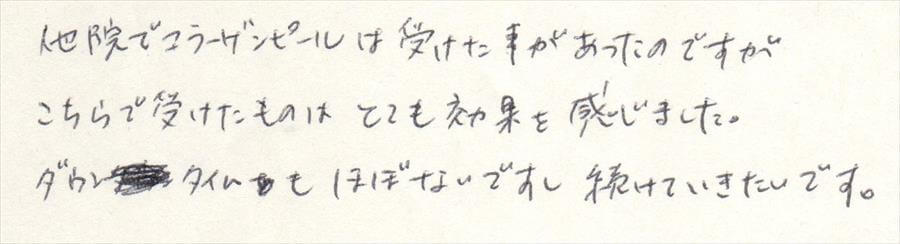 他院でコラーゲンピールは受けた事があったのですが
こちらで受けたものは とても効果を感じました。
ダウンタイムも ほぼないですし 続けていきたいです。